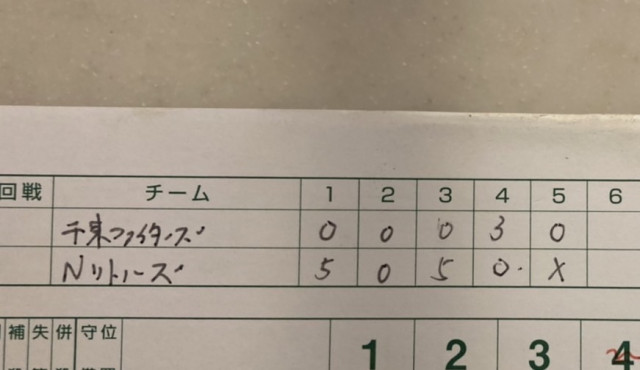 回戦 チーム 1 2 3 4 5 6
千束ファイターズ 0 0 0 3 0
Nリトルーズ 5 0 5 0. X
補 失 併 守位
1 2 3 4